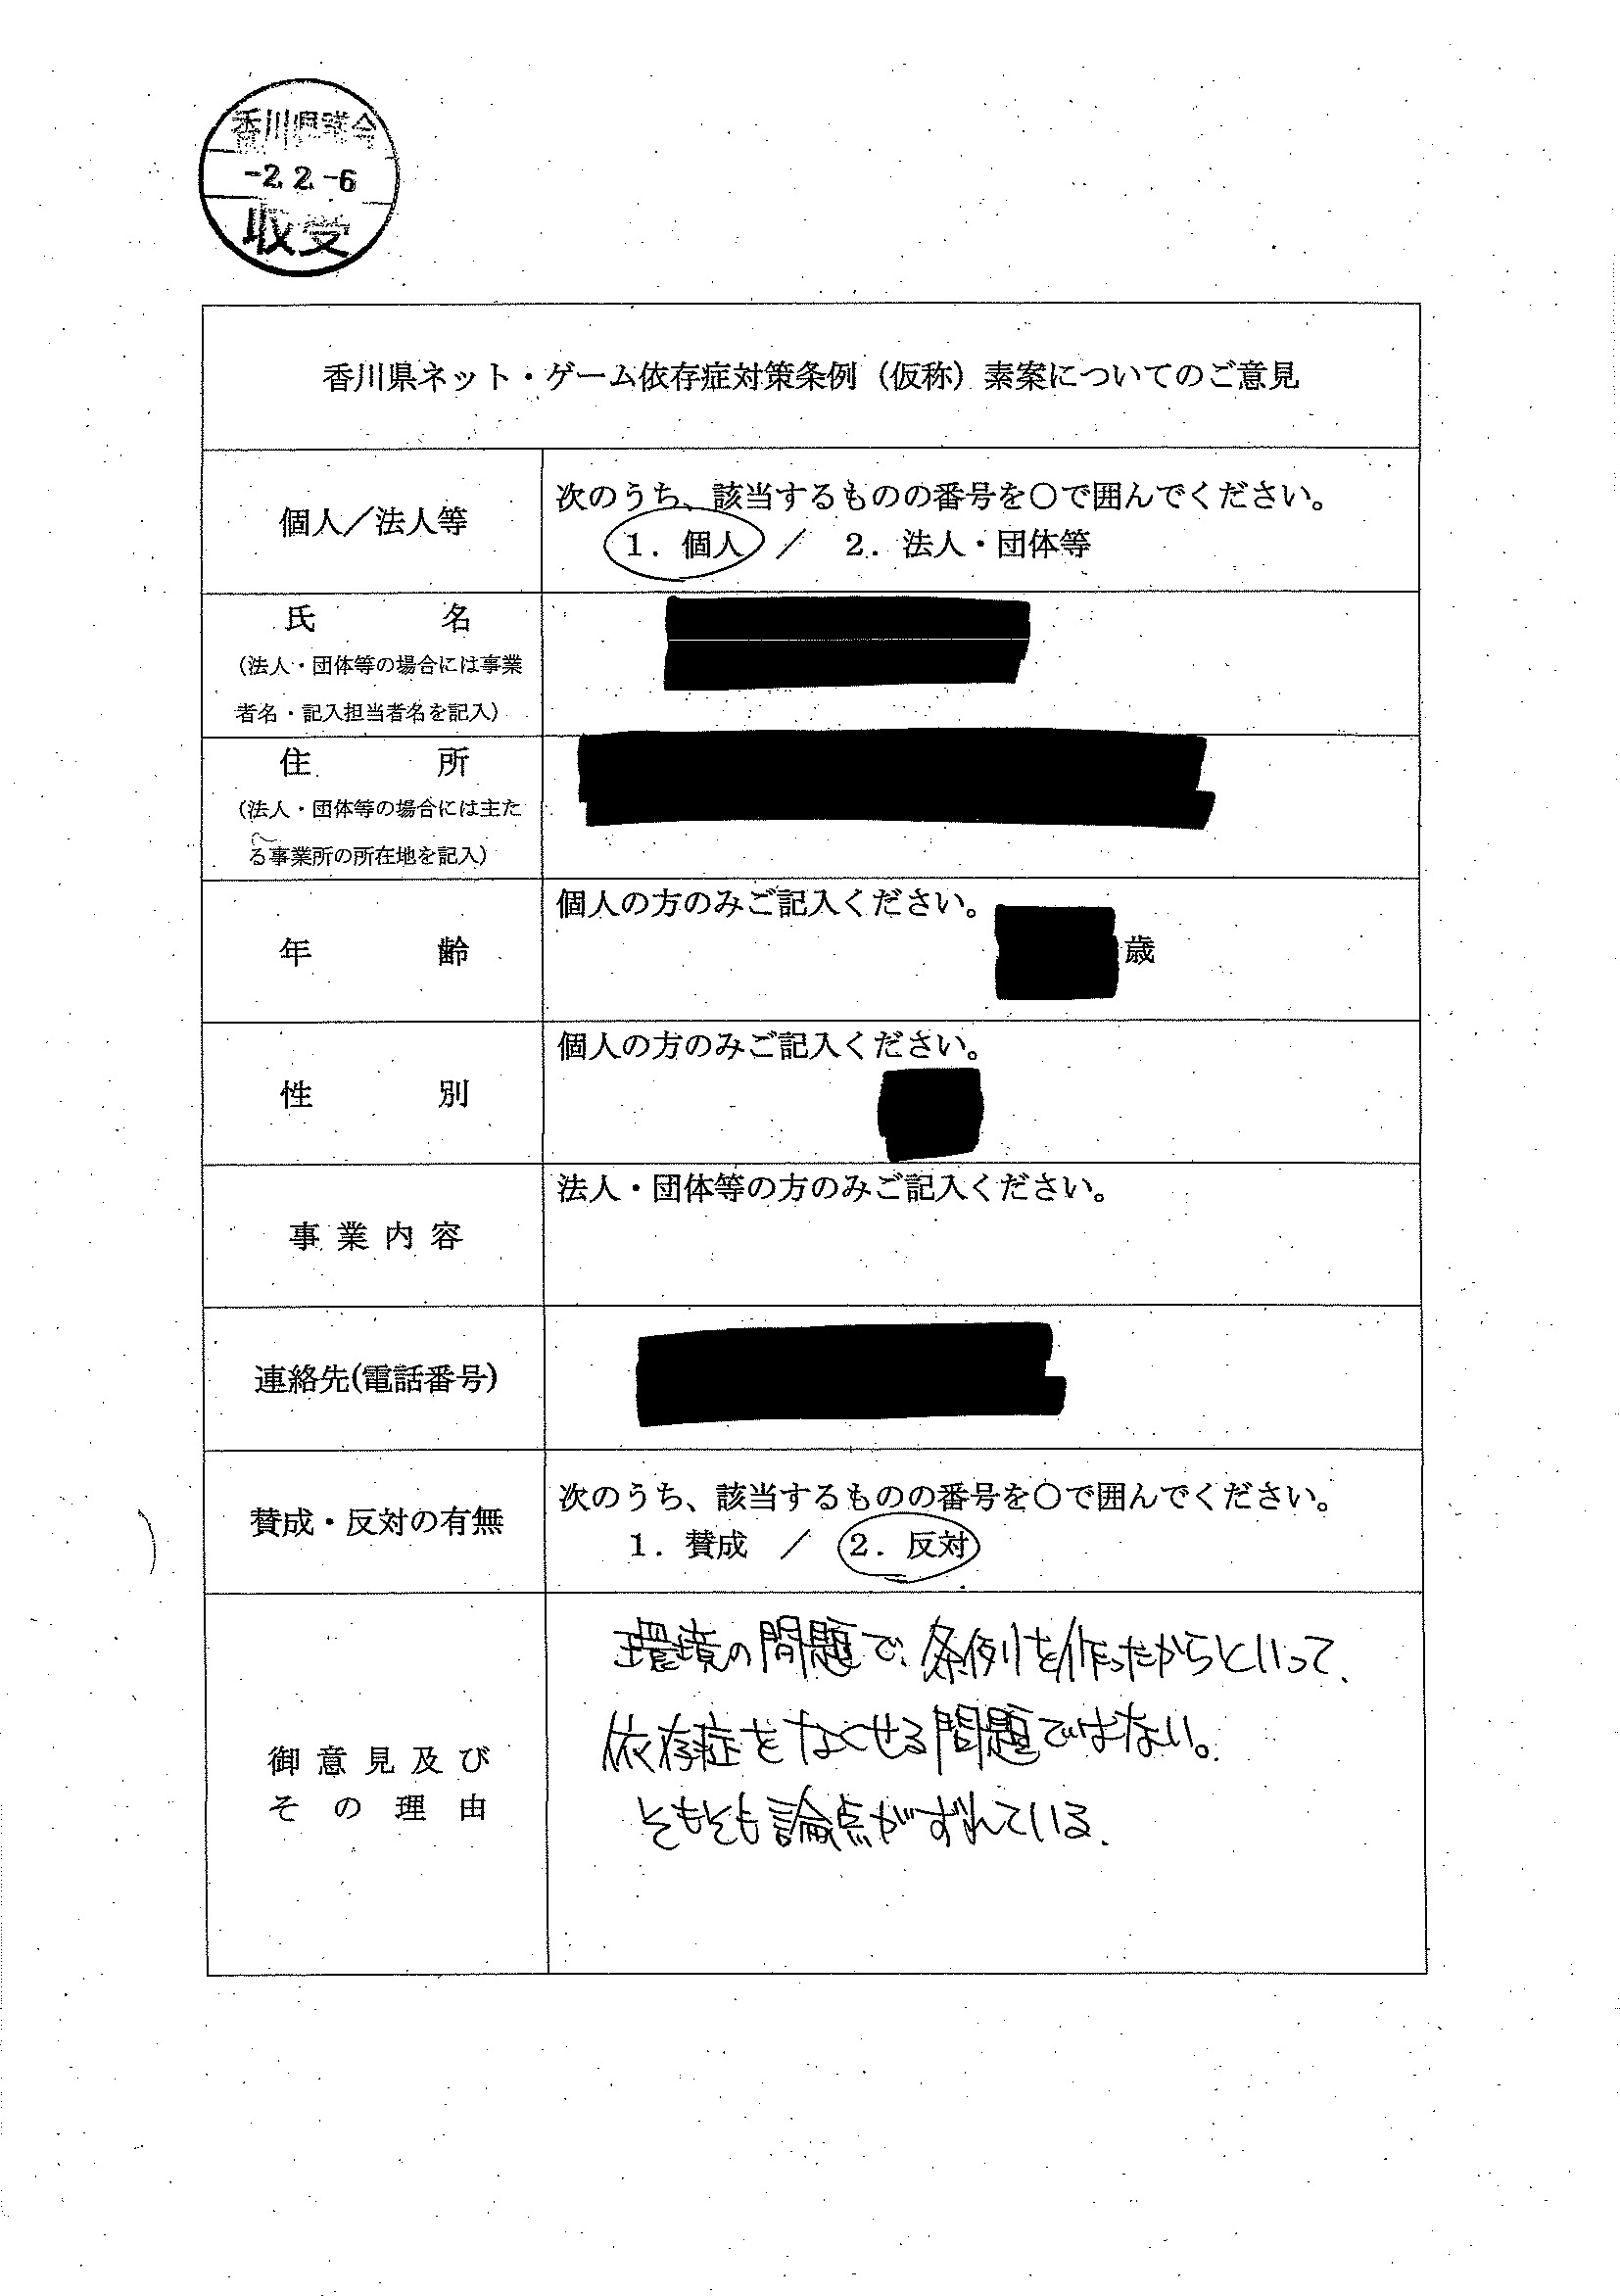 香川県議会
-2.2.-6
収受
香川県ネット・ゲーム依存症対策条例（仮称）素案についてのご意見
個人／法人等
次のうち、該当するものの番号を〇で囲んでください。
1．個人 ／ 2．法人・団体等
氏 名
（法人・団体等の場合には事業
者名・記入担当者名を記入）
住 所
（法人・団体等の場合には主た
る事業所の所在地を記入）
年 齢
個人の方のみご記入ください。
歳
性 別
個人の方のみご記入ください。
事業内容
法人・団体等の方のみご記入ください。
連絡先(電話番号)
賛成・反対の有無
次のうち、該当するものの番号を〇で囲んでください。
1．賛成 ／ 2．反対
御意見及び
その理由
環境の問題で、条例を作ったからといって、
依存症をなくせる問題ではない。
そもそも論点がずれている。